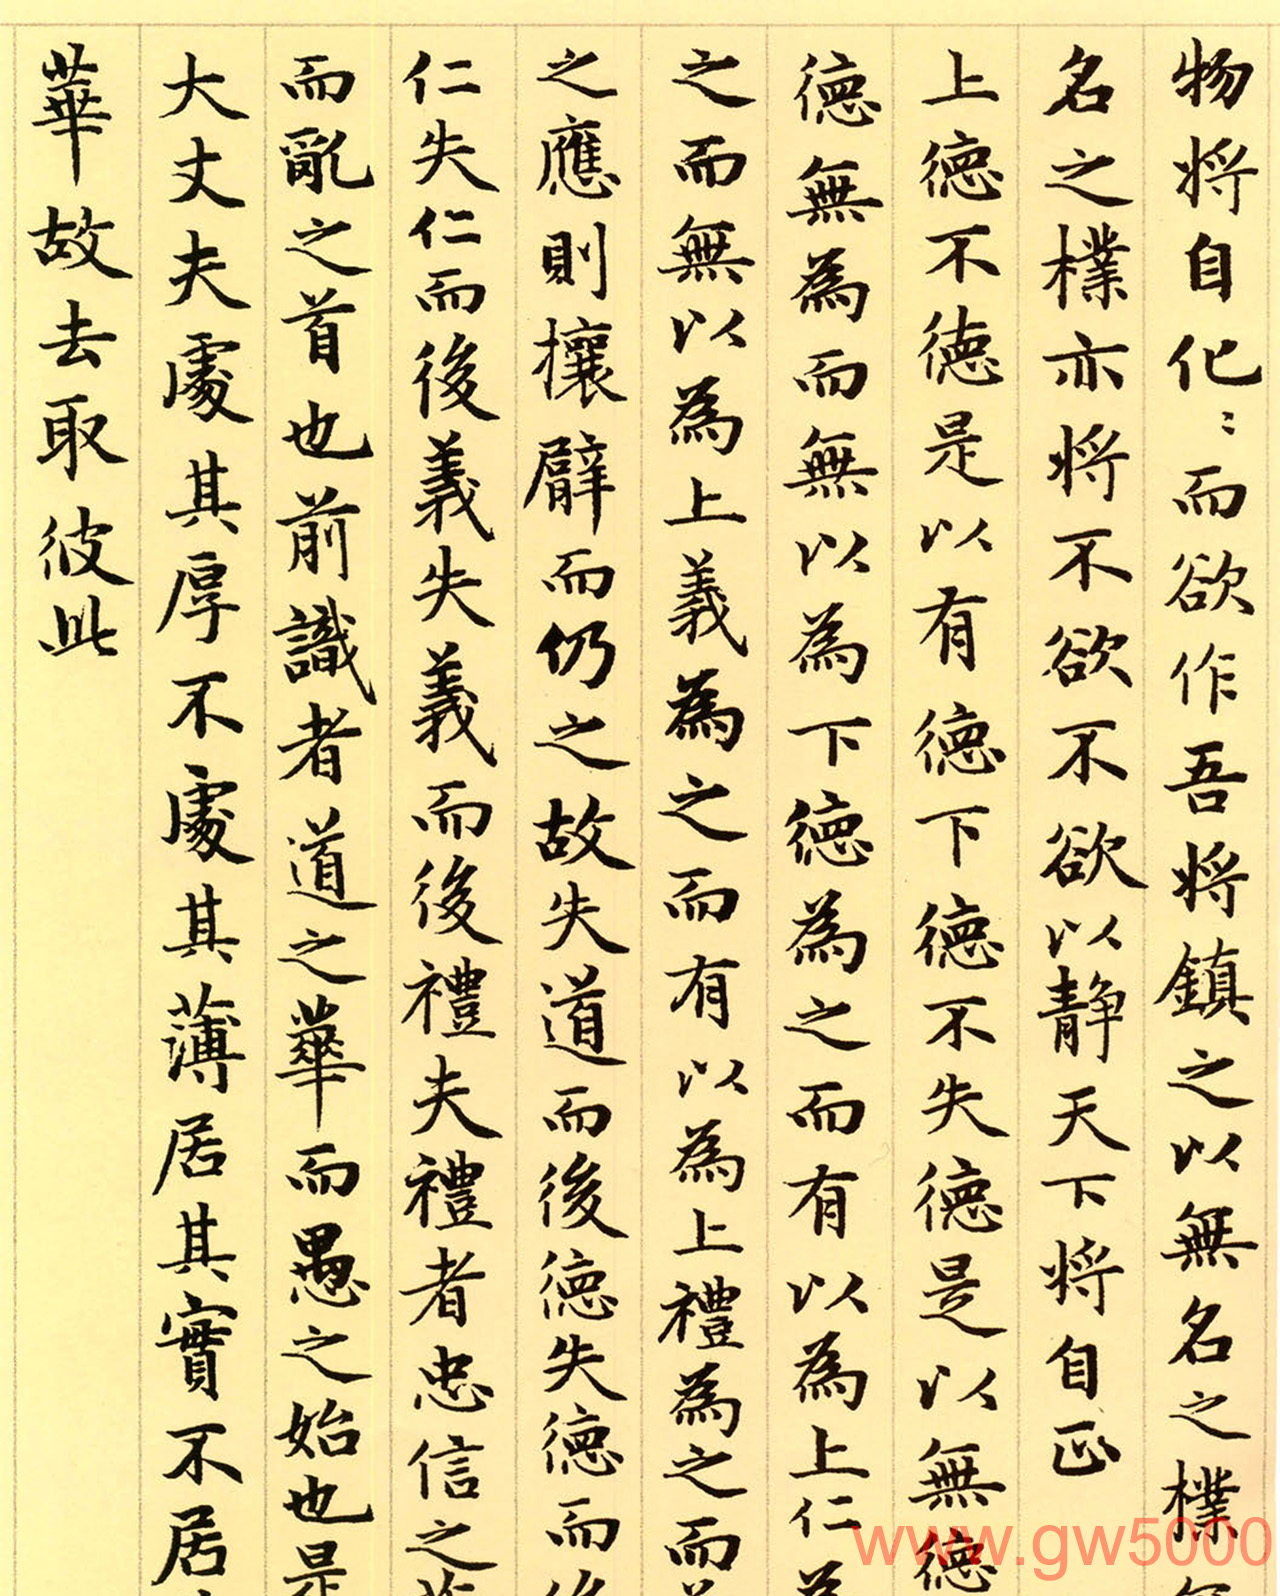 物将自化〻而欲作吾将鎮之以無名之樸
名之樸亦将不欲不欲以静天下将自正
上德不德是以有德下德不失德是以無德
德無為而無以為下德為之而有以為上仁
之而無以為上義為之而有以為上禮為之而
之應則攘臂而仍之故失道而後德失德而後
仁失仁而後義失義而後禮夫禮者忠信之
而亂之首也前識者道之華而愚之始也是
大丈夫處其厚不處其薄居其實不居
華故去取彼此
www.gw5000